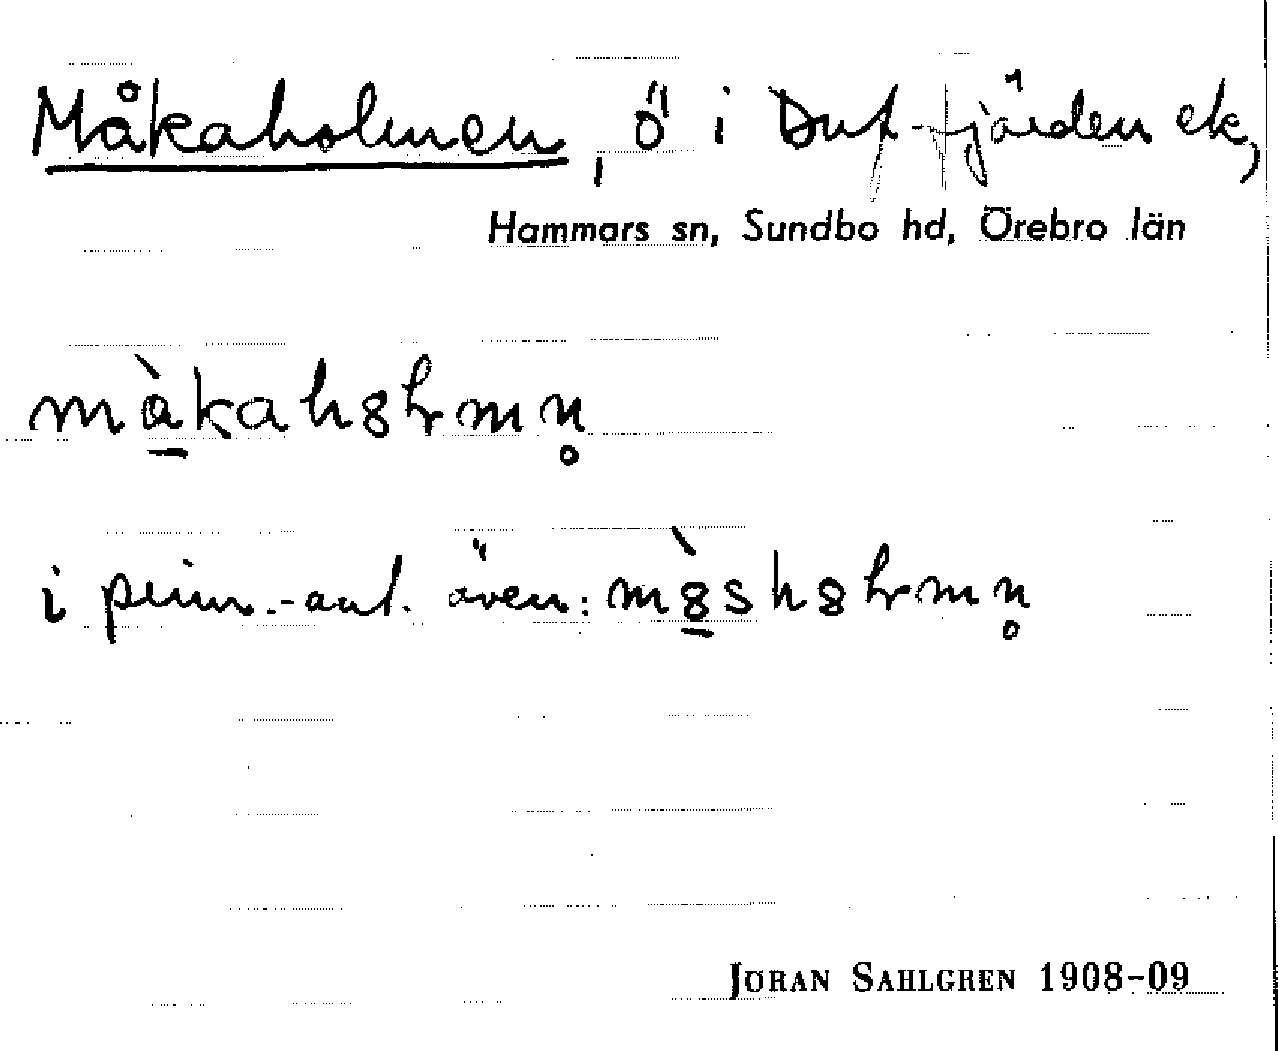 Måkaholmen, ö i Duf-fjärden ek,
Hammars sn, Sundbo hd, Örebro län
màkah8lmn̥
även: m8̀sh8lmn̥
JÖRAN SAHLGREN 1908-09